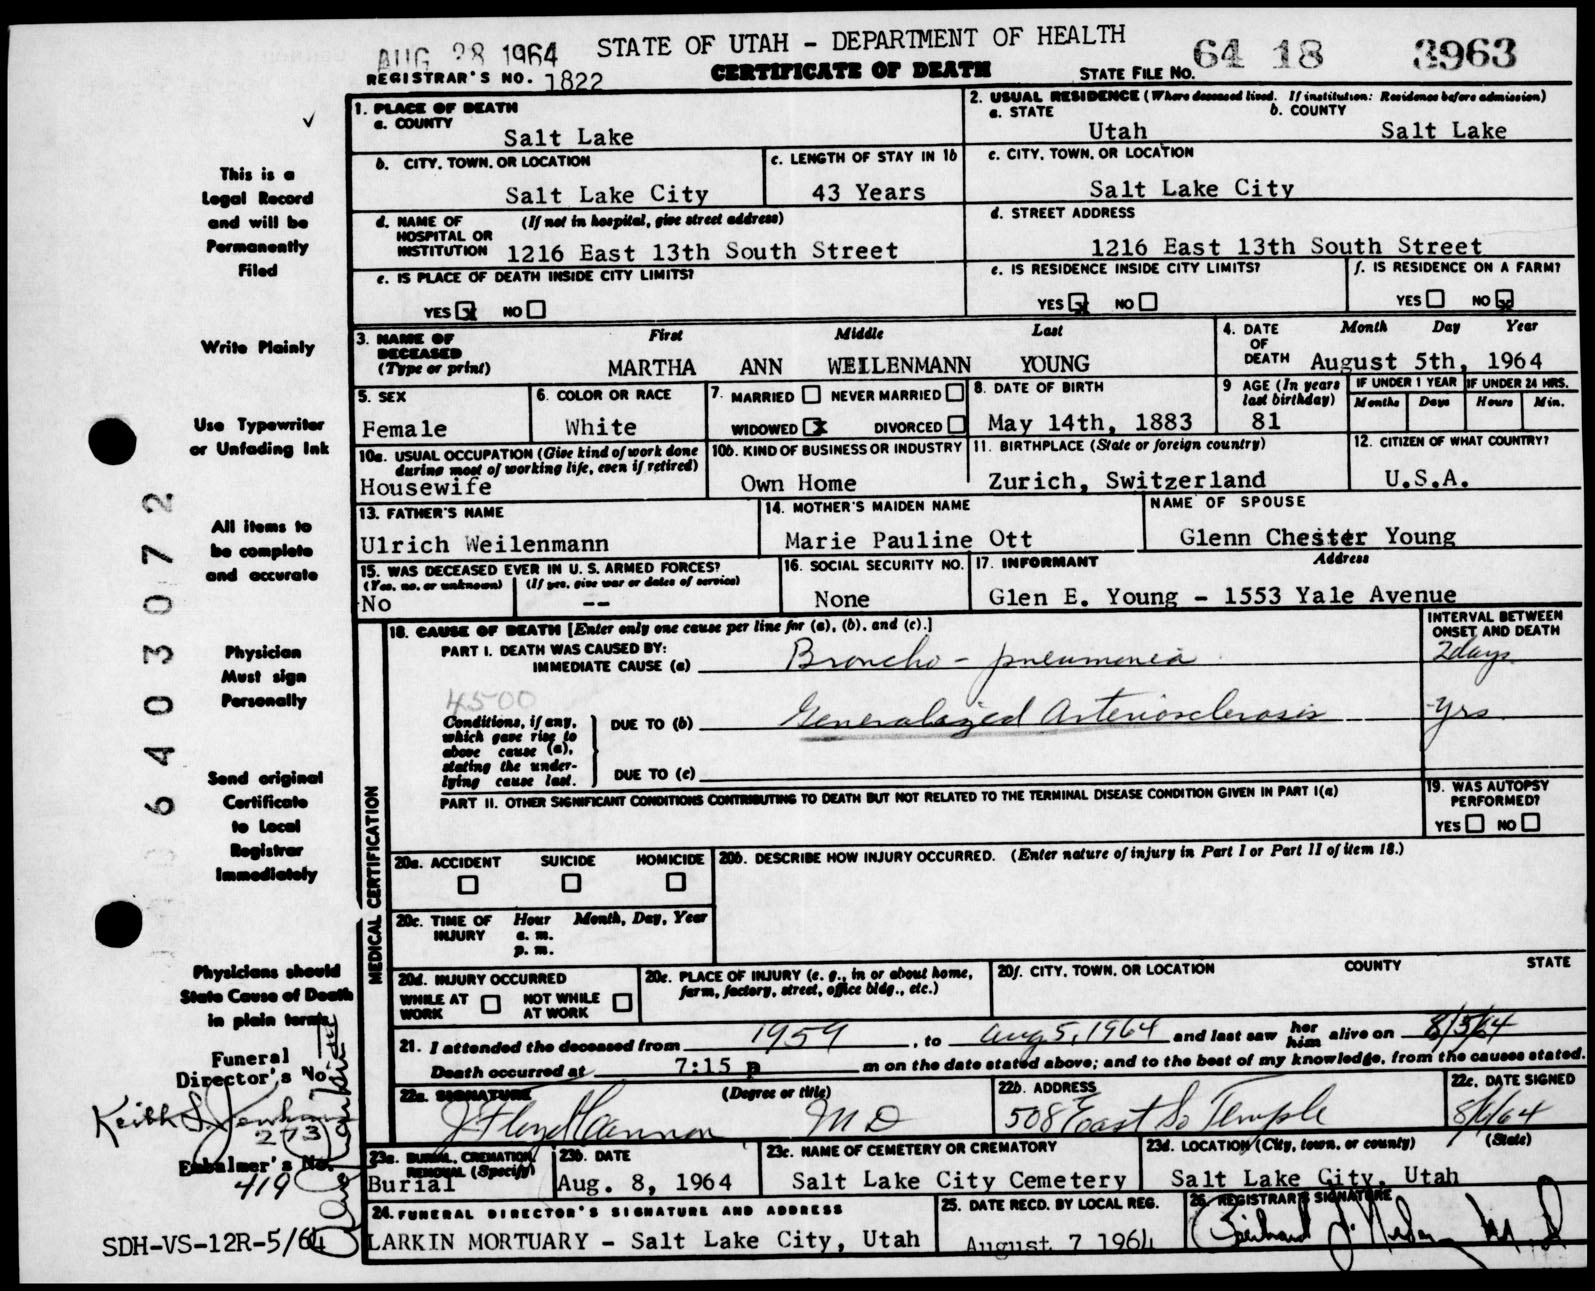 AUG 28 1964 STATE OF UTAH - DEPARTMENT OF HEALTH 64 18 3963
REGISTRAR'S NO. 1822 CERTIFICATE OF DEATH STATE FILE NO.
1. PLACE OF DEATH
a. COUNTY
Salt Lake
2. USUAL RESIDENCE (Where deceased lived. If institution: Residence before admission)
a. STATE b. COUNTY
Utah Salt Lake
b. CITY, TOWN, OR LOCATION
Salt Lake City
c. LENGTH OF STAY IN 1b
43 Years
c. CITY, TOWN, OR LOCATION
Salt Lake City
d. NAME OF (If not in hospital, give street address)
HOSPITAL OR
INSTITUTION 1216 East 13th South Street
d. STREET ADDRESS
1216 East 13th South Street
e. IS PLACE OF DEATH INSIDE CITY LIMITS?
YES x NO
e. IS RESIDENCE INSIDE CITY LIMITS?
YES x NO
f. IS RESIDENCE ON A FARM?
YES NO x
3. NAME OF First Middle Last
DECEASED
(Type or print) MARTHA ANN WEILENMANN YOUNG
4. DATE Month Day Year
OF
DEATH August 5th, 1964
5. SEX
Female
6. COLOR OR RACE
White
7. MARRIED NEVER MARRIED
WIDOWED x DIVORCED
8. DATE OF BIRTH
May 14th, 1883
9 AGE (In years
last birthday)
81
IF UNDER 1 YEAR IF UNDER 24 HRS.
Months Days Hours Min.
10a. USUAL OCCUPATION (Give kind of work done
during most of working life, even if retired)
Housewife
10b. KIND OF BUSINESS OR INDUSTRY
Own Home
11. BIRTHPLACE (State or foreign country)
Zurich, Switzerland
12. CITIZEN OF WHAT COUNTRY?
U.S.A.
13. FATHER'S NAME
Ulrich Weilenmann
14. MOTHER'S MAIDEN NAME
Marie Pauline Ott
NAME OF SPOUSE
Glenn Chester Young
15. WAS DECEASED EVER IN U. S. ARMED FORCES?
(Yes, no, or unknown) (If yes, give war or dates of service)
No --
16. SOCIAL SECURITY NO.
None
17. INFORMANT Address
Glen E. Young - 1553 Yale Avenue
18. CAUSE OF DEATH [Enter only one cause per line for (a), (b), and (c).]
INTERVAL BETWEEN
ONSET AND DEATH
PART I. DEATH WAS CAUSED BY:
IMMEDIATE CAUSE (a) Broncho-pneumonia 2 days
4500
Conditions, if any,
which gave rise to
above cause (a),
stating the under-
lying cause last.
DUE TO (b) Generalized Arteriosclerosis yrs
DUE TO (c)
PART II. OTHER SIGNIFICANT CONDITIONS CONTRIBUTING TO DEATH BUT NOT RELATED TO THE TERMINAL DISEASE CONDITION GIVEN IN PART I(a)
19. WAS AUTOPSY
PERFORMED?
YES NO
MEDICAL CERTIFICATION
20a. ACCIDENT SUICIDE HOMICIDE
20b. DESCRIBE HOW INJURY OCCURRED. (Enter nature of injury in Part I or Part II of item 18.)
20c. TIME OF Hour Month, Day, Year
INJURY a. m.
p. m.
20d. INJURY OCCURRED
WHILE AT NOT WHILE
WORK AT WORK
20e. PLACE OF INJURY (e. g., in or about home,
farm, factory, street, office bldg., etc.)
20f. CITY, TOWN, OR LOCATION COUNTY STATE
21. I attended the deceased from 1959, to Aug 5, 1964 and last saw her him alive on 8/5/64
Death occurred at 7:15 p m on the date stated above; and to the best of my knowledge, from the causes stated.
22a. SIGNATURE (Degree or title)
J Floyd Cannon M D
22b. ADDRESS
508 East So Temple
22c. DATE SIGNED
8/6/64
23a. BURIAL, CREMATION,
REMOVAL (Specify)
Burial
23b. DATE
Aug. 8, 1964
23c. NAME OF CEMETERY OR CREMATORY
Salt Lake City Cemetery
23d. LOCATION (City, town, or county) (State)
Salt Lake City, Utah
24. FUNERAL DIRECTOR'S SIGNATURE AND ADDRESS
LARKIN MORTUARY - Salt Lake City, Utah
25. DATE RECD. BY LOCAL REG.
August 7 1964
26. REGISTRAR'S SIGNATURE
This is a
Legal Record
and will be
Permanently
Filed
Write Plainly
Use Typewriter
or Unfading Ink
All items to
be complete
and accurate
Physician
Must sign
Personally
Send original
Certificate
to Local
Registrar
Immediately
Physicians should
State Cause of Death
in plain terms
Funeral
Director's No.
Keith S.
273
Embalmer's No.
419
SDH-VS-12R-5/64
6403072